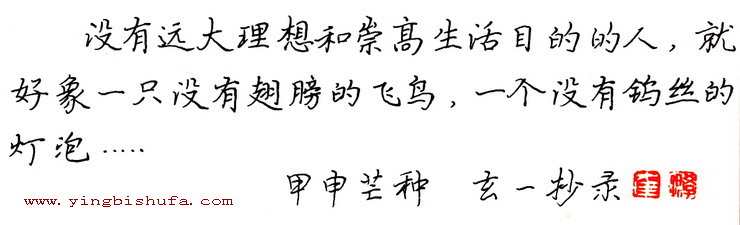 没有远大理想和崇高生活目的的人，就
好象一只没有翅膀的飞鸟，一个没有钨丝的
灯泡·····
甲申芒种 玄一抄录
www.yingbishufa.com